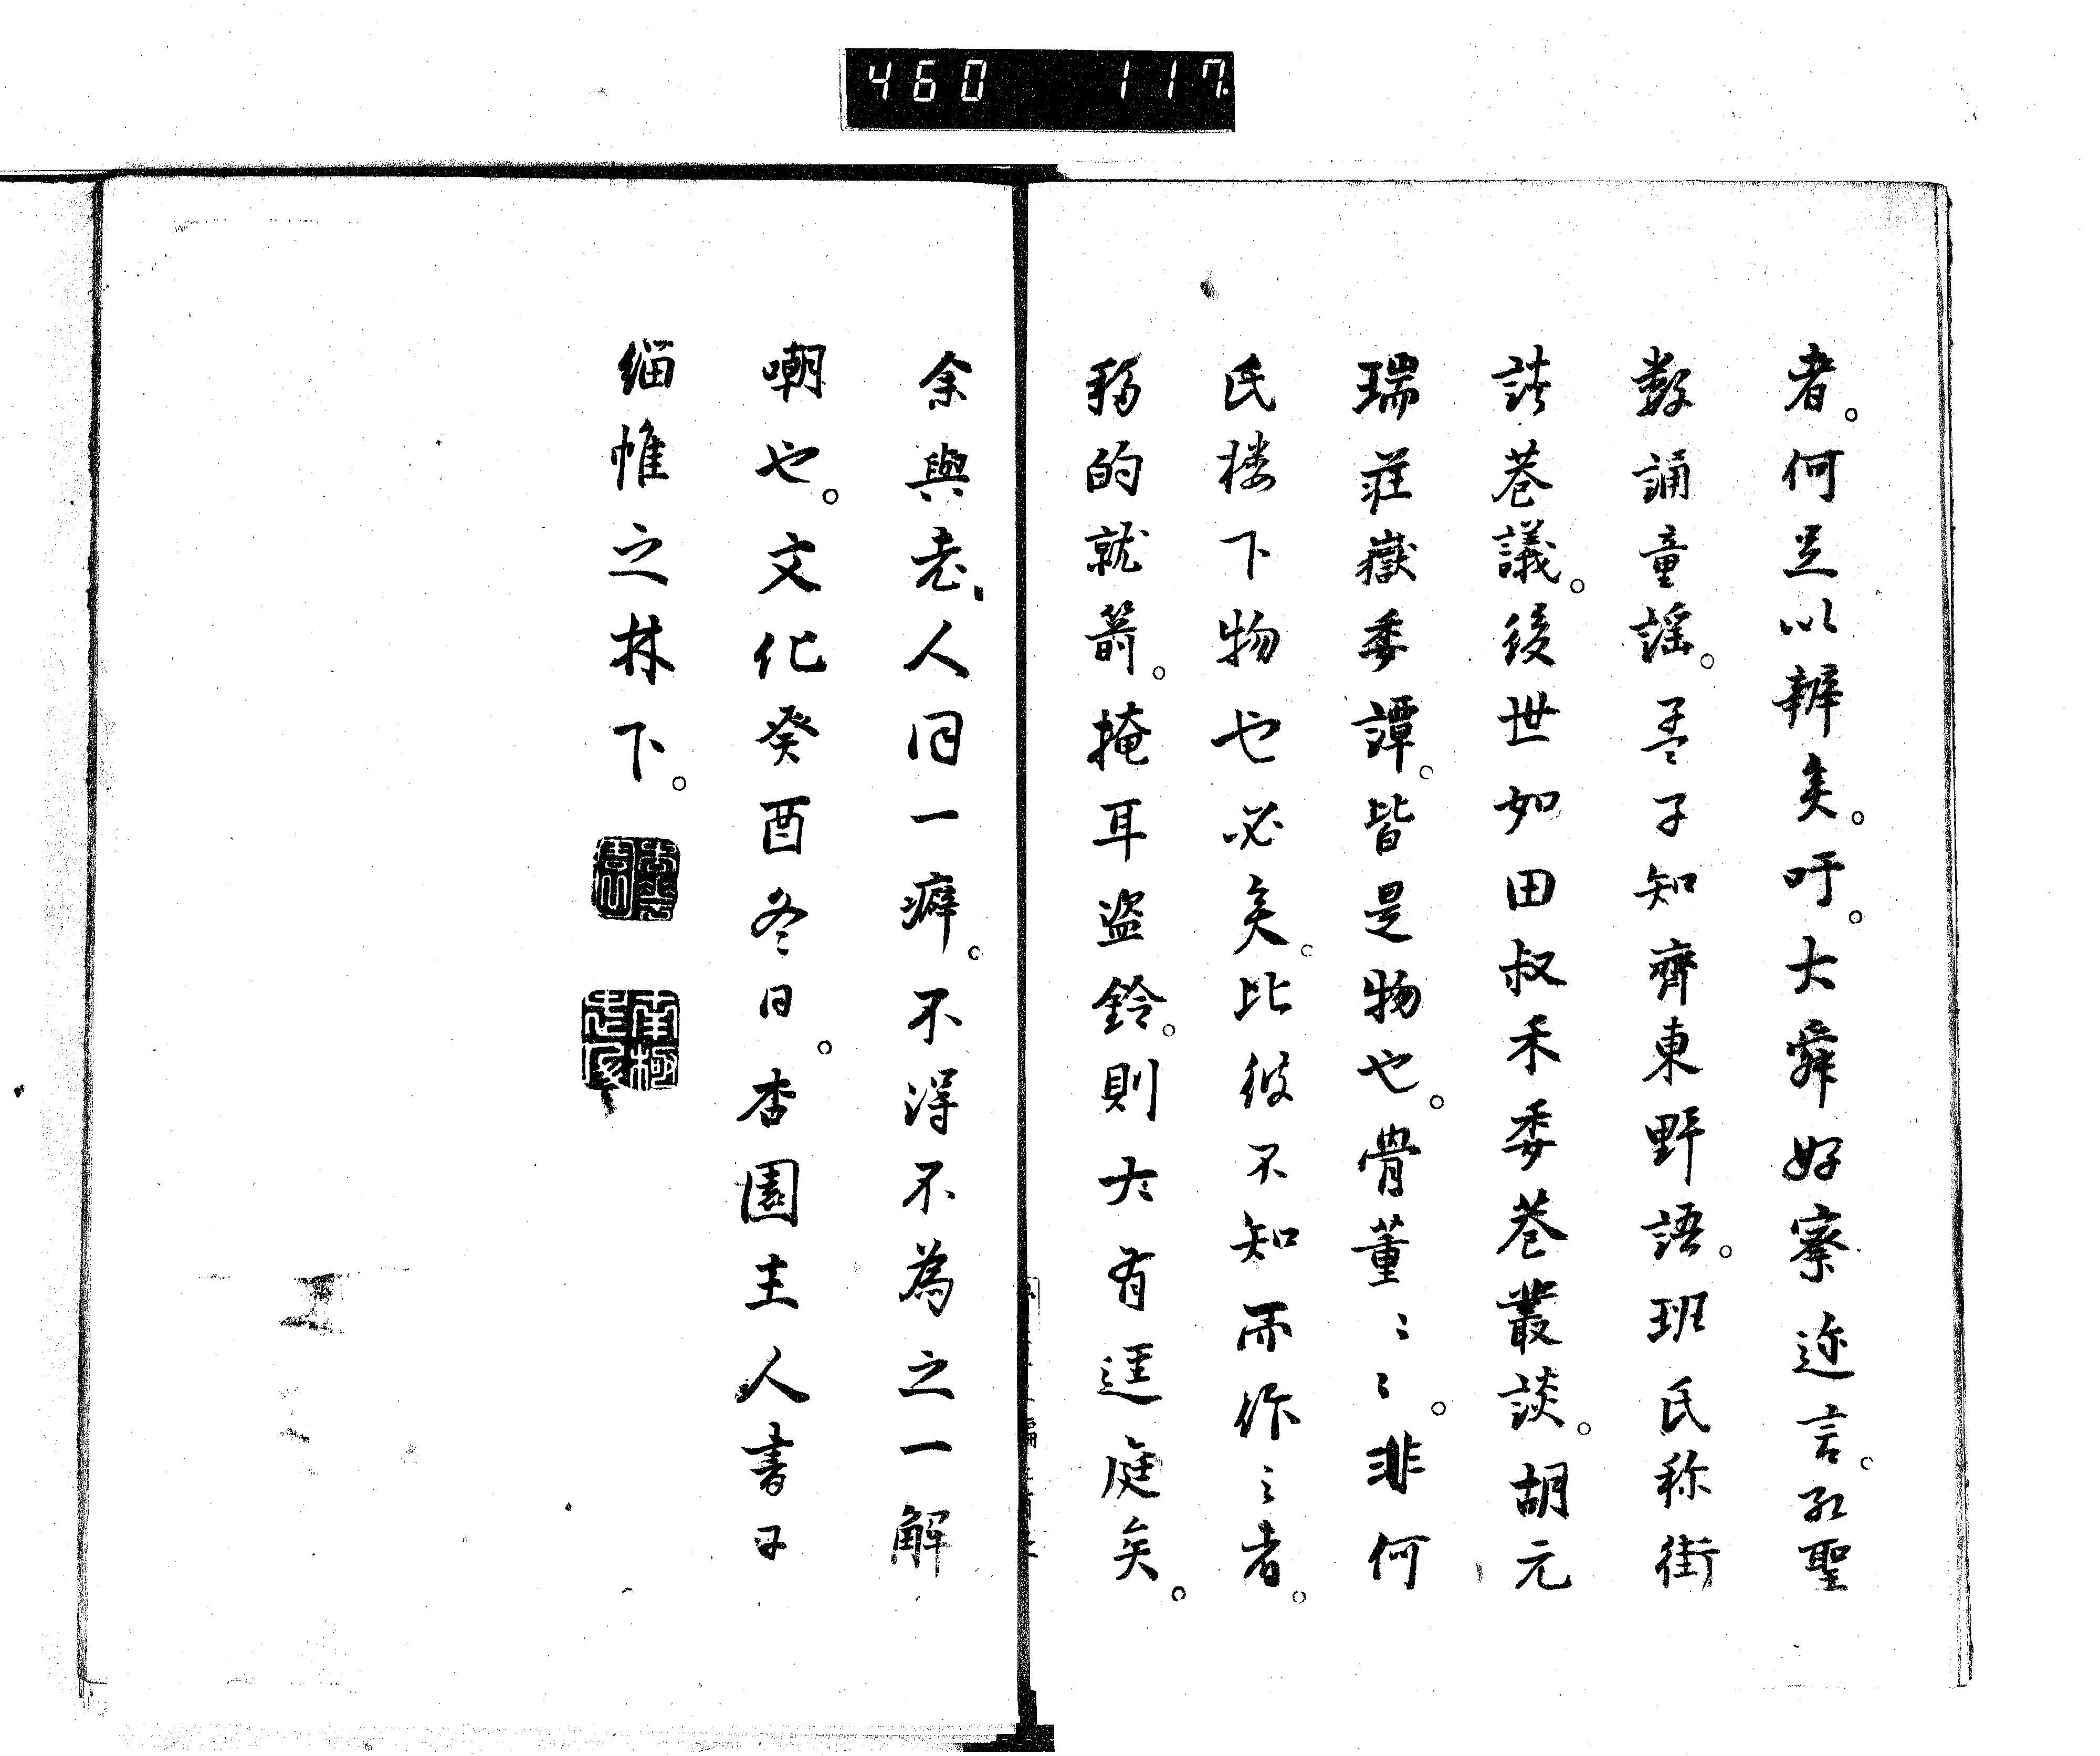 460 117
者。何足以辨矣。吁。大舜好察迩言。孔聖
数誦童謡。孟子知齊東野語。班氏称街
談巷議。後世如田叔禾委巷叢談。胡元
瑞莊嶽委譚。皆是物也。骨董〻〻。非何
氏楼下物也必矣。比彼不知而作〻者。
移的就箭。掩耳盗鈴。則大有逕庭矣。
余與老人同一癖。不得不為之一解
嘲也。文化癸酉冬日。杏園主人書于
緇帷之林下。